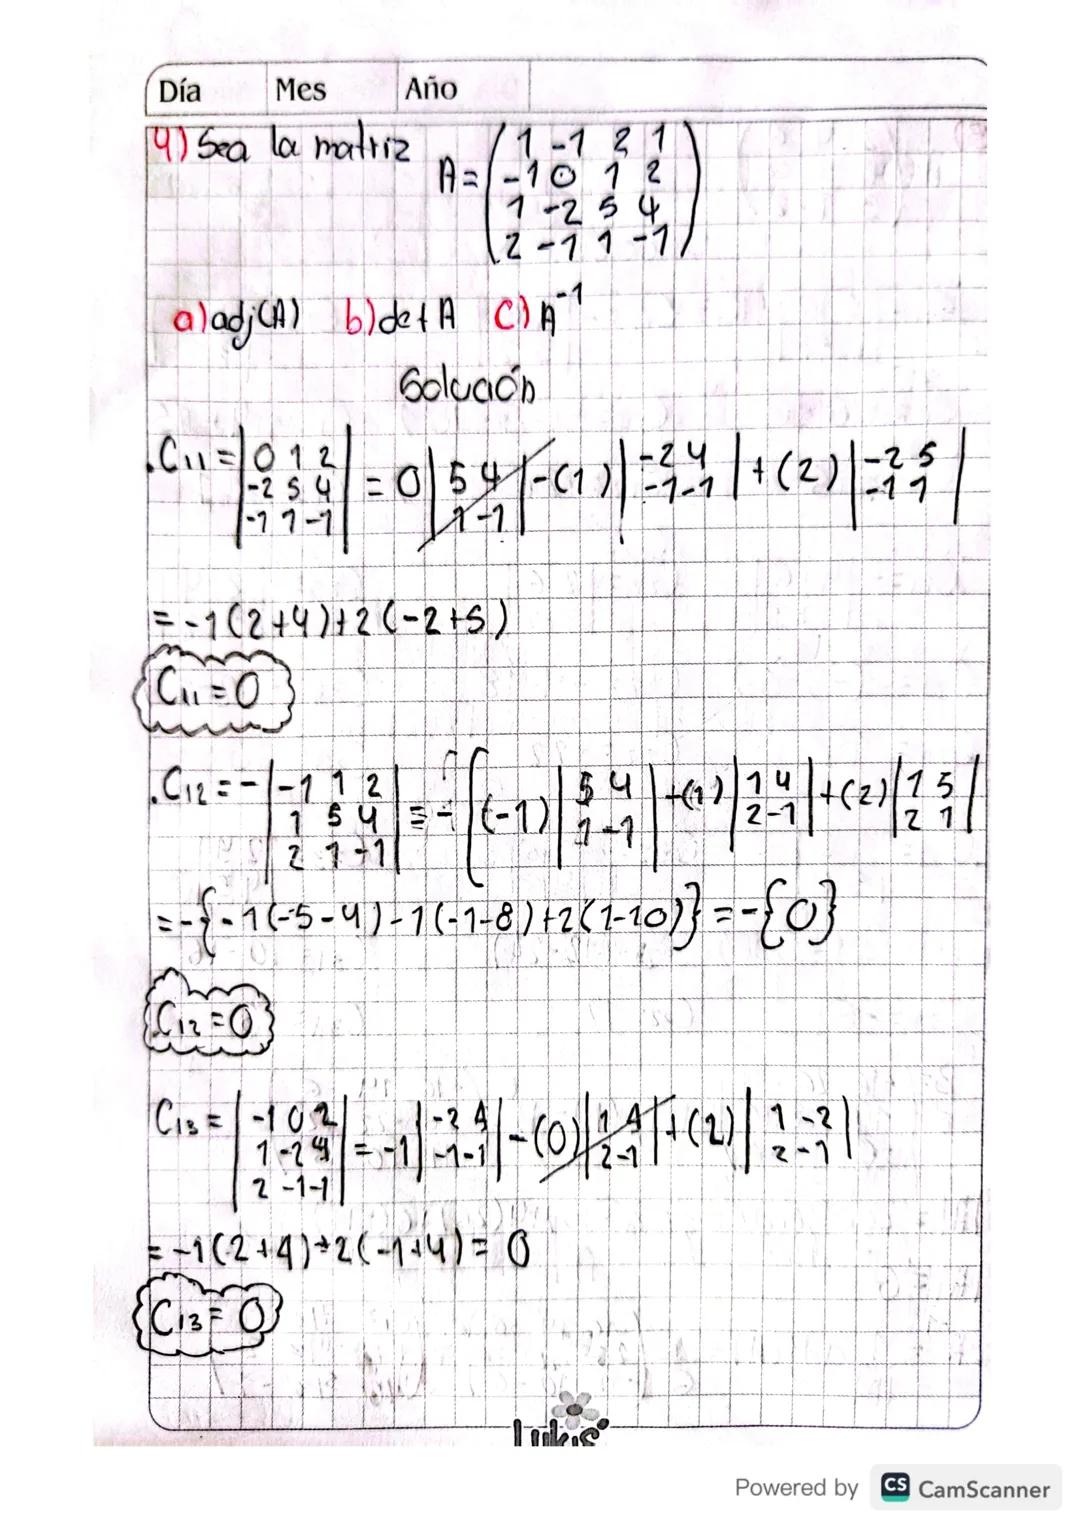 Día Mes Año
4) Sea la matriz A = ( 1 -1 2 1
-1 0 1 2
1 -2 5 4
2 -1 1 -1 )
a) adj(A) b) det A c) A⁻¹
Solución
. C11 = | 0 1 2 | = 0 | 5 4 | -(1) | -2 4 | + (2) | -2 5 |
| -2 5 4 | | 1 -1 | | -1 -1 | | -1 1 |
| -1 1 -1 |
= -1(2+4)+2(-2+5)
C11 = 0
. C12 = - | -1 1 2 | = - [ (-1) | 5 4 | -(1) | 1 4 | + (2) | 1 5 |
| 1 5 4 | | 1 -1 | | 2 -1 | | 2 1 |
| 2 1 -1 |
= -{-1(-5-4)-1(-1-8)+2(1-10)} = -{0}
C12 = 0
C13 = | -1 0 2 | = -1 | -2 4 | -(0) | 1 4 | + (2) | 1 -2 |
| 1 -2 4 | | -1 -1 | | 2 -1 | | 2 -1 |
| 2 -1 -1 |
= -1(2+4)+2(-1+4) = 0
C13 = 0
Lukis
Powered by CS CamScanner